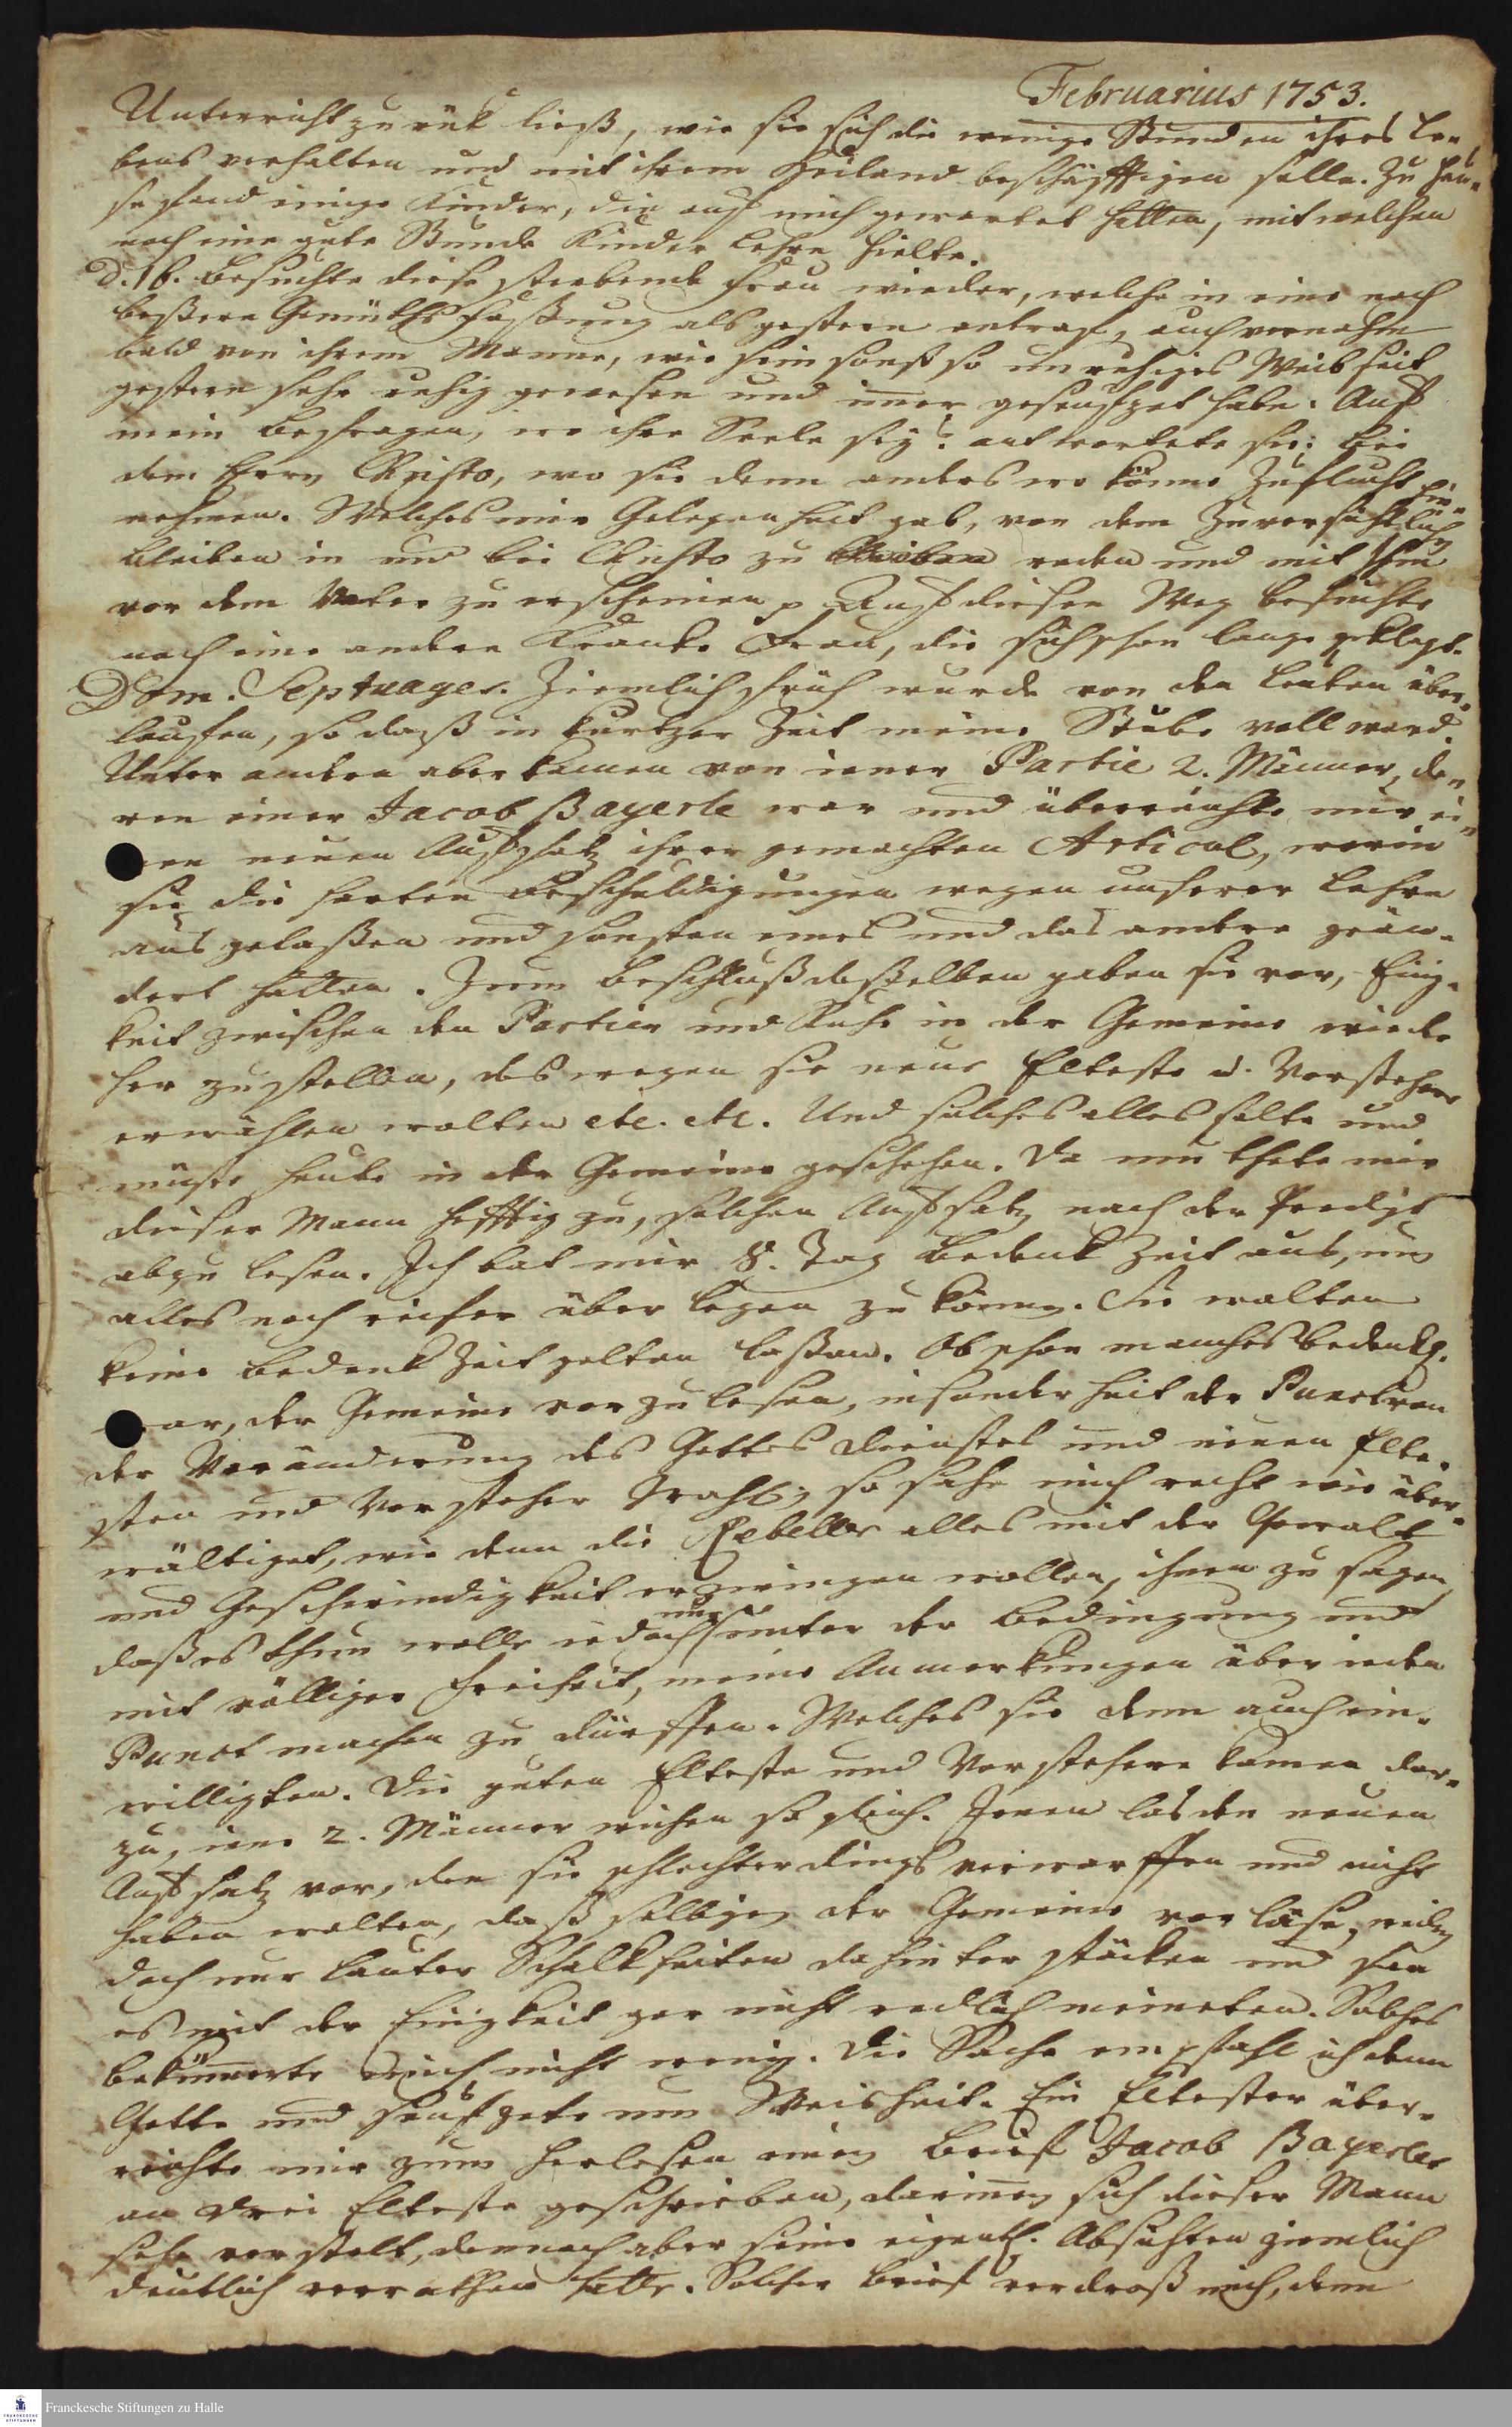 Februarius 1753.
Unterricht zurük ließ, wie sie sich die wenige Stunden ihres Le-
bens verhalten und mit ihrem Heiland beschäfftigen solle. Zu Hau-
se fand einige Kinder, die auf mich gewartet hatten, mit welchen
noch eine gute Stunde Kinder Lehre hielte.
D. 16. besuchte diese sterbende Frau wieder, welche in eine noch
beßere Gemüths faßung als gestern antraf, auch vernahm
bald von ihrem Manne, wie sein sonst so unruhiges Weib seit
gestern sehr ruhig gewesen und imer geseufzet habe. Auf
mein Befragen, wo ihre Seele sey? antwortete sie: bei
dem Herrn Christo, wo sie denn anders wo könne Zuflucht hin-
nehmen. Welches mir Gelegenheit gab, von dem Zuversichtlichen
bleiben in und bei Christo zu reden und mit Ihm
vor dem Vater zu erscheinen p Auf diesen Weg besuchte
noch eine andere Kranke Frau, die sich schon lange geklagt.
Dom. Septuages. Ziemlich früh wurde von den Leuten über-
lauffen, so daß in kurtzer Zeit meine Stube voll ward.
Unter andern aber kamen von iener Partie 2. Männer, de-
ren einer Jacob Bayerle war und überreichte mir ei-
nen neuen Auffsatz ihrer gemachten Articul, worin
sie die harten Beschuldigungen wegen unserer Lehre
ausgelaßen und sonsten eines und das andere geän-
dert hatten. Zum Beschluß desselben gaben sie vor, Einig-
keit zwischen den Partien und Ruhe in der Gemeine wieder
her zustellen, deswegen sie neue Elteste u. Vorsteher
erwählen wolten etc. etc. Und solches alles solte und
müste heute in der Gemeine geschehen. Da nun setzte mir
dieser Mann hefftig zu, solchen Auffsatz nach der Predigt
abzulesen. Ich bat mir 8. Tag Bedenk Zeit aus, um
alles noch reifer über legen zu können. Sie wolten
keine Bedenk Zeit gelten laßen. Ob schon manches bedenkl.
war, der Gemeine vor zu lesen, insonderheit der Punct von
der Veränderung des Gottes dienstes und neuen Elte-
sten und Vorsteher Wahl; so sahe mich recht wie über-
wältiget, wie denn die Rebeller alles mit der Gewalt
und Geschwindigkeit erzwingen wollen, ihnen zu sagen,
daß es thun wolle iedoch nur unter der Bedingung und
mit völliger Freiheit, meine Anmerkungen über ieden
Punct machen zu dürffen. Welches sie denn auch ein-
willigten. Die guten Elteste und Vorstehere kamen dar-
zu, iene 2. Männer wichen so gleich. Jenen las den neuen
Auff satz vor, den sie schlechterdings verwarffen und nicht
haben wolten, daß selbigen der Gemeine vor läse, weiln
doch nur lauter Schalkheiten dahinter stäcken und sie
es mit der Einigkeit gar nicht redlich meineten. Solches
bekümerte mich nicht wenig. Die Sache empfahl ich denn
Gotte und seufzete um Weisheit. Ein Eltester über-
reichte mir zum herlesen einen Brief Jacob Bayerles
an drei Elteste geschrieben, darinnen sich dieser Mann
sehr verstelt, dennoch aber seine eigentl. Absichten ziemlich
deutlich verrathen hatte. Solcher Brief verdroß mich, denn
Franckesche Stiftungen zu Halle